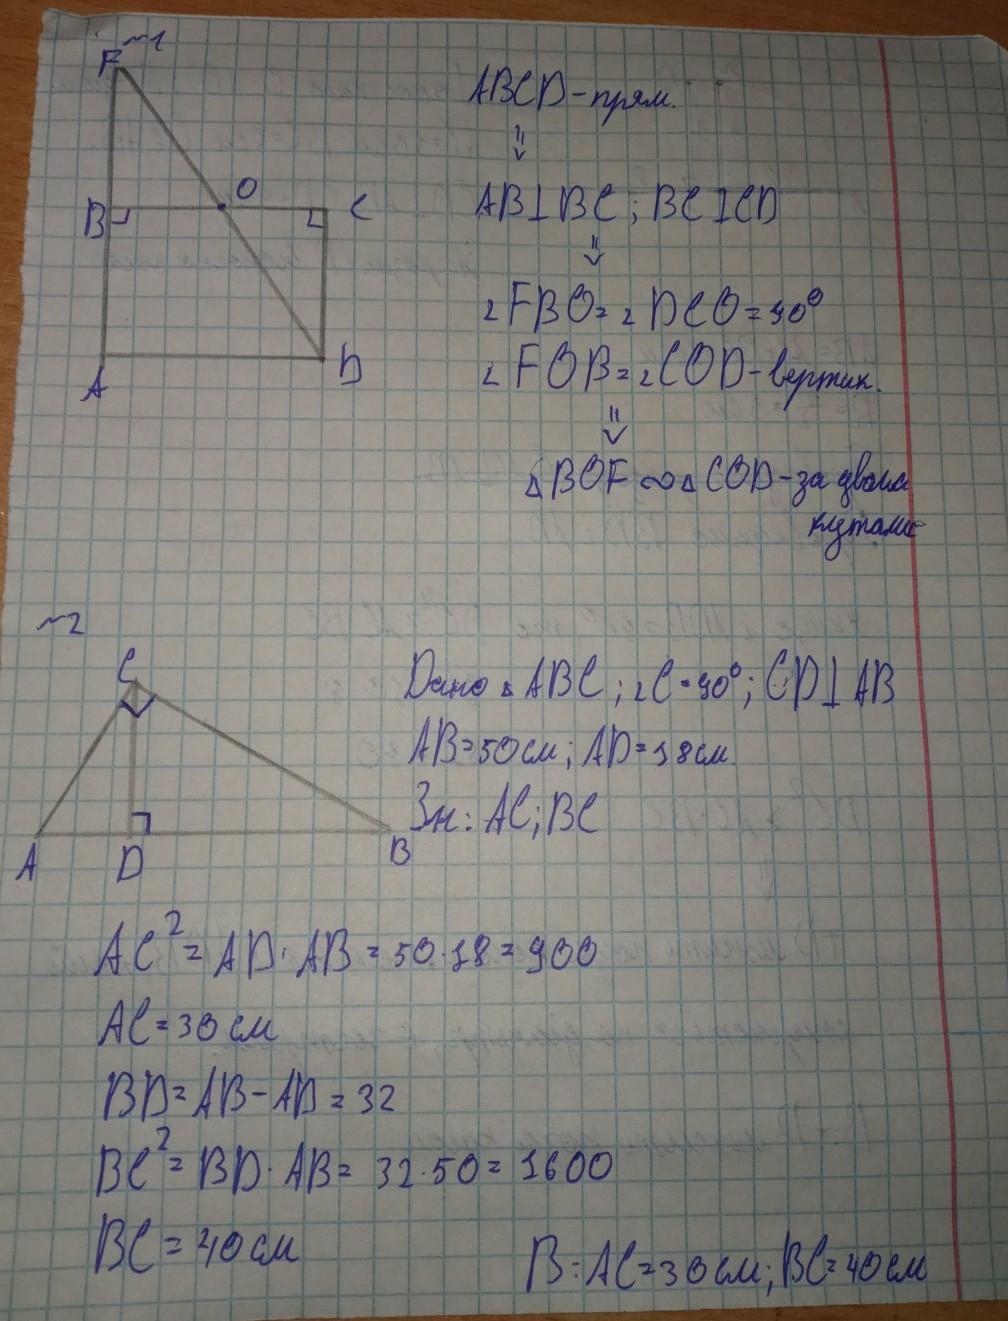 ~1
F
O
B
C
A
D
ABCD-прям.
⇓
AB⊥BC; BC⊥CD
⇓
∠FBO=∠DCO=90°
∠FOB=∠COD-вертик.
⇓
△BOF∾△COD-за двома
кутами
~2
C
A
D
B
Дано △ABC; ∠C=90°; CD⊥AB
AB=50см; AD=18см
Зн: AC; BC
AC²=AD·AB=50·18=900
AC=30см
BD=AB-AD=32
BC²=BD·AB=32·50=1600
BC=40см
В: AC=30см; BC=40см